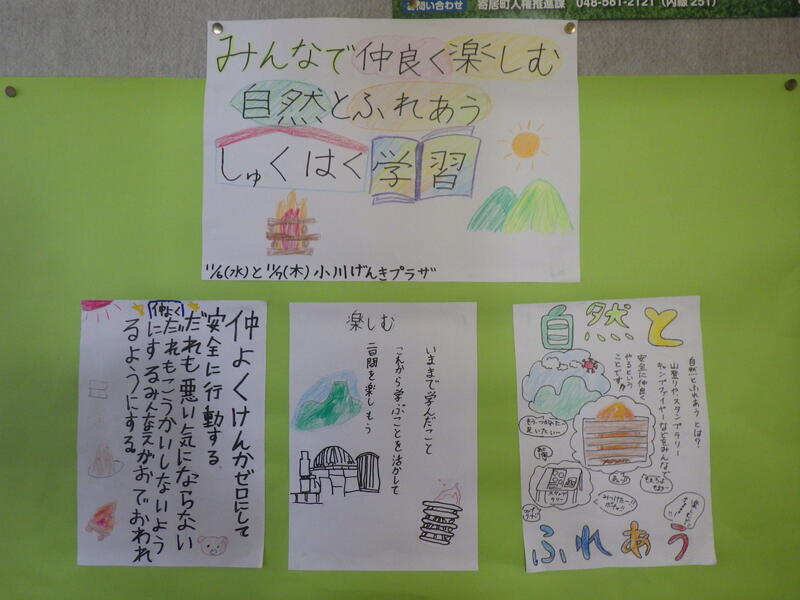 お問い合わせ 寄居町人権推進課 048-581-2121（内線251）
みんなで仲良く楽しむ
自然とふれあう
しゅくはく学習
11/6(水)と11/7(木)小川げんきプラザ
仲よくけんかゼロにして
安全に行動する
だれも悪い気にならない
仲よく
だれもこうかいしないよう
にするみんなえがおでおわれ
るようにする
楽しむ
いままで学んだこと
これから学ぶことを活かして
二日間を楽しもう
自然と
自然とふれあうとは?
山登りや、スタンプラリー
キャンプファイヤーなどをみんなで
安全に仲良く
やるという
ことです!!
スタンプラリー
ふれあう